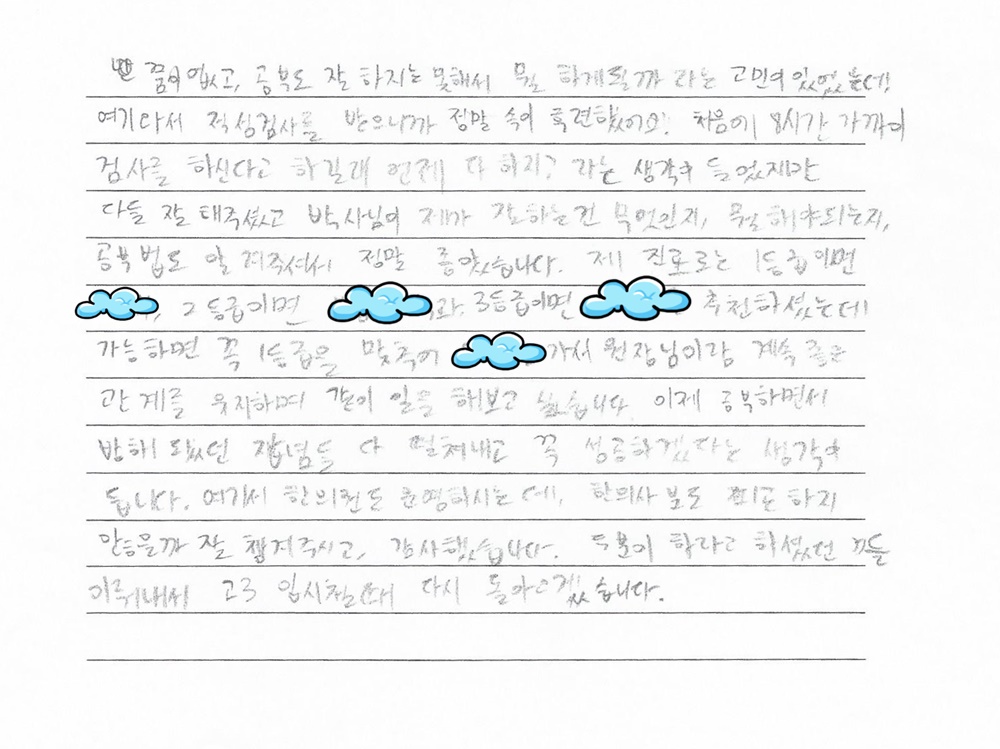 꿈이 없고, 공부도 잘 하지는 못해서 뭘 하게될까 라는 고민이 있었는데!
여기와서 적성검사를 받으니까 정말 속이 후련했어요! 처음에 8시간 가까이
검사를 하신다고 하길래 언제 다 하지? 라는 생각이 들었지만
다들 잘 해주셨고 박사님이 제가 잘하는건 무엇인지, 뭘해야되는지,
공부법도 알려주셔서 정말 좋았습니다. 제 진로로는 1등급이면
, 2등급이면 과 3등급이면 추천하셨는데
가능하면 꼭 1등급을 맞추어 가서 원장님이랑 계속 좋은
관계를 유지하며 같이 일을 해보고 싶습니다 이제 공부하면서
방해 됐던 잡념들 다 떨쳐내고 꼭 성공하겠다는 생각이
듭니다. 여기서 한의원도 운영하시는데, 한의사 분도 하지
않을까 잘 챙겨주시고, 감사했습니다. 두분이 하라고 하셨던 것들
이뤄내서 고3 입시철때 다시 돌아오겠습니다.